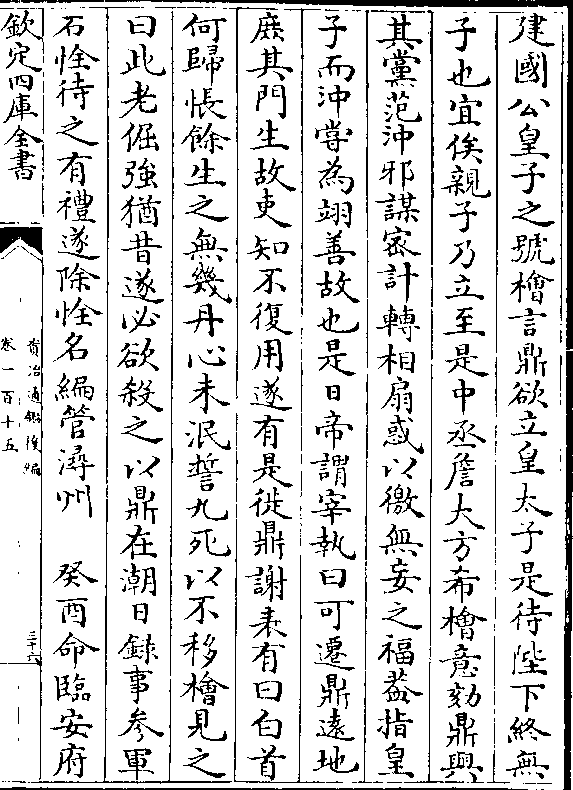 建國公皇子之號檜言鼎欲立皇太子是待陛下終無
子也宜俟親子乃立至是中丞詹大方希檜意劾鼎與
其黨范沖邪謀宻計轉相扇惑以徼無妄之福葢指皇
子而沖嘗為翊善故也是日帝謂宰執曰可遷鼎遠地
庶其門生故吏知不復用遂有是徙鼎謝表有曰白首
何歸悵餘生之無幾丹心未泯誓九死以不移檜見之
曰此老倔強猶昔遂必欲殺之以鼎在潮日録事參軍
石恮待之有禮遂除恮名編管潯州 癸酉命臨安府
欽定四庫全書
資治通鑑後編
卷一百十五
三十六